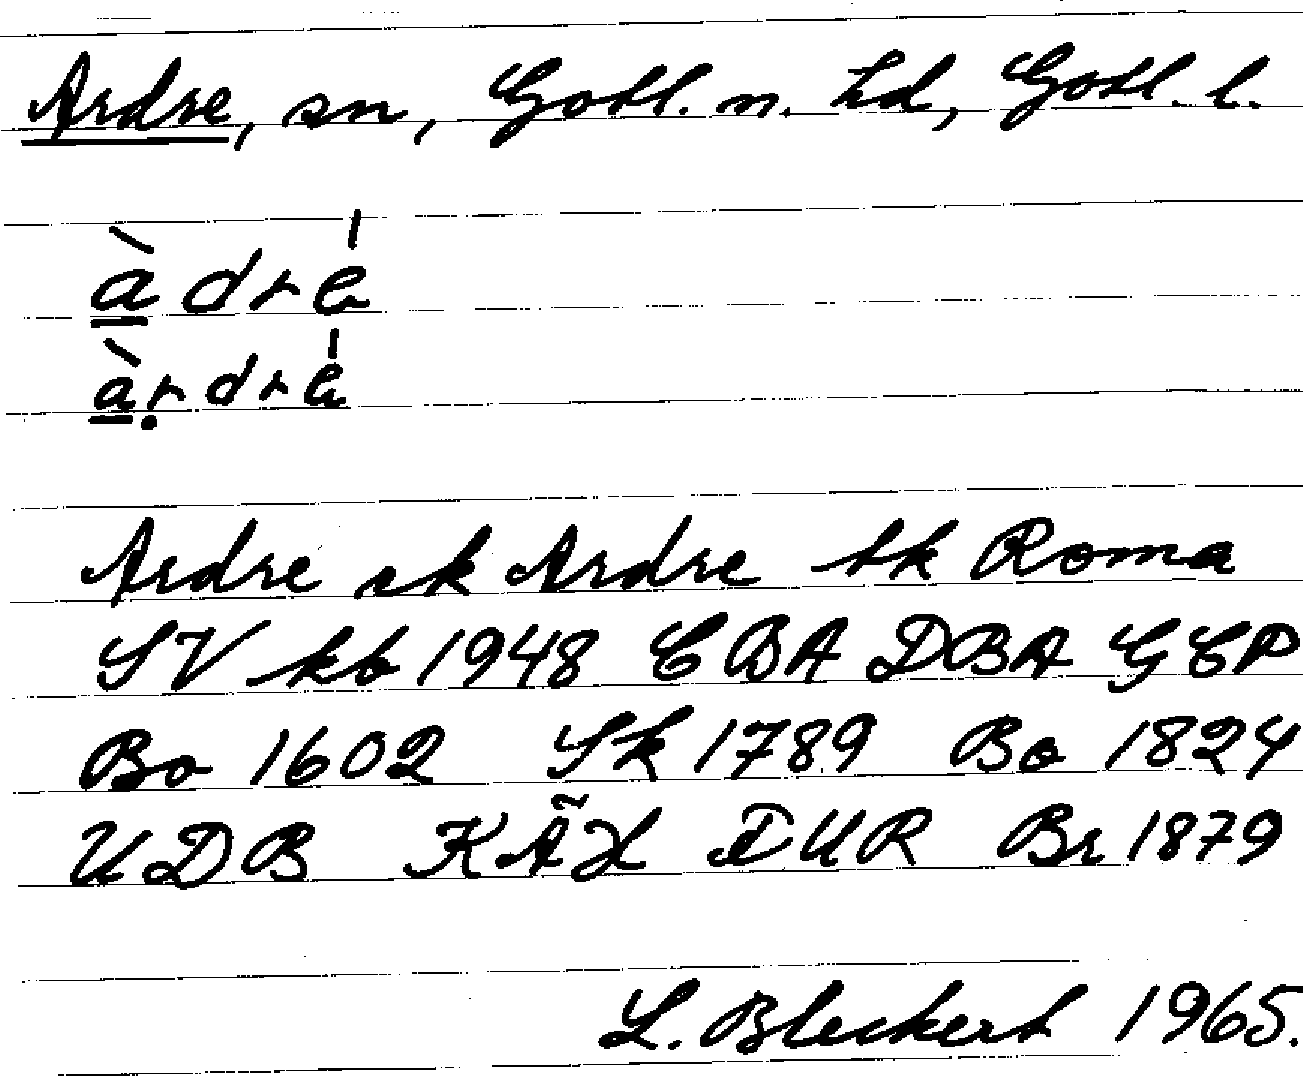 Ardre, sn, Gotl. n. hd, Gotl. l.
àdré
àrdré
Ardre sk Ardre tk Roma
SV kb 1948 EBA DBA GEP
Bo 1602 Sk 1789 Bo 1824
UDB KÃH DUR Br 1879
L. Bleckert 1965.